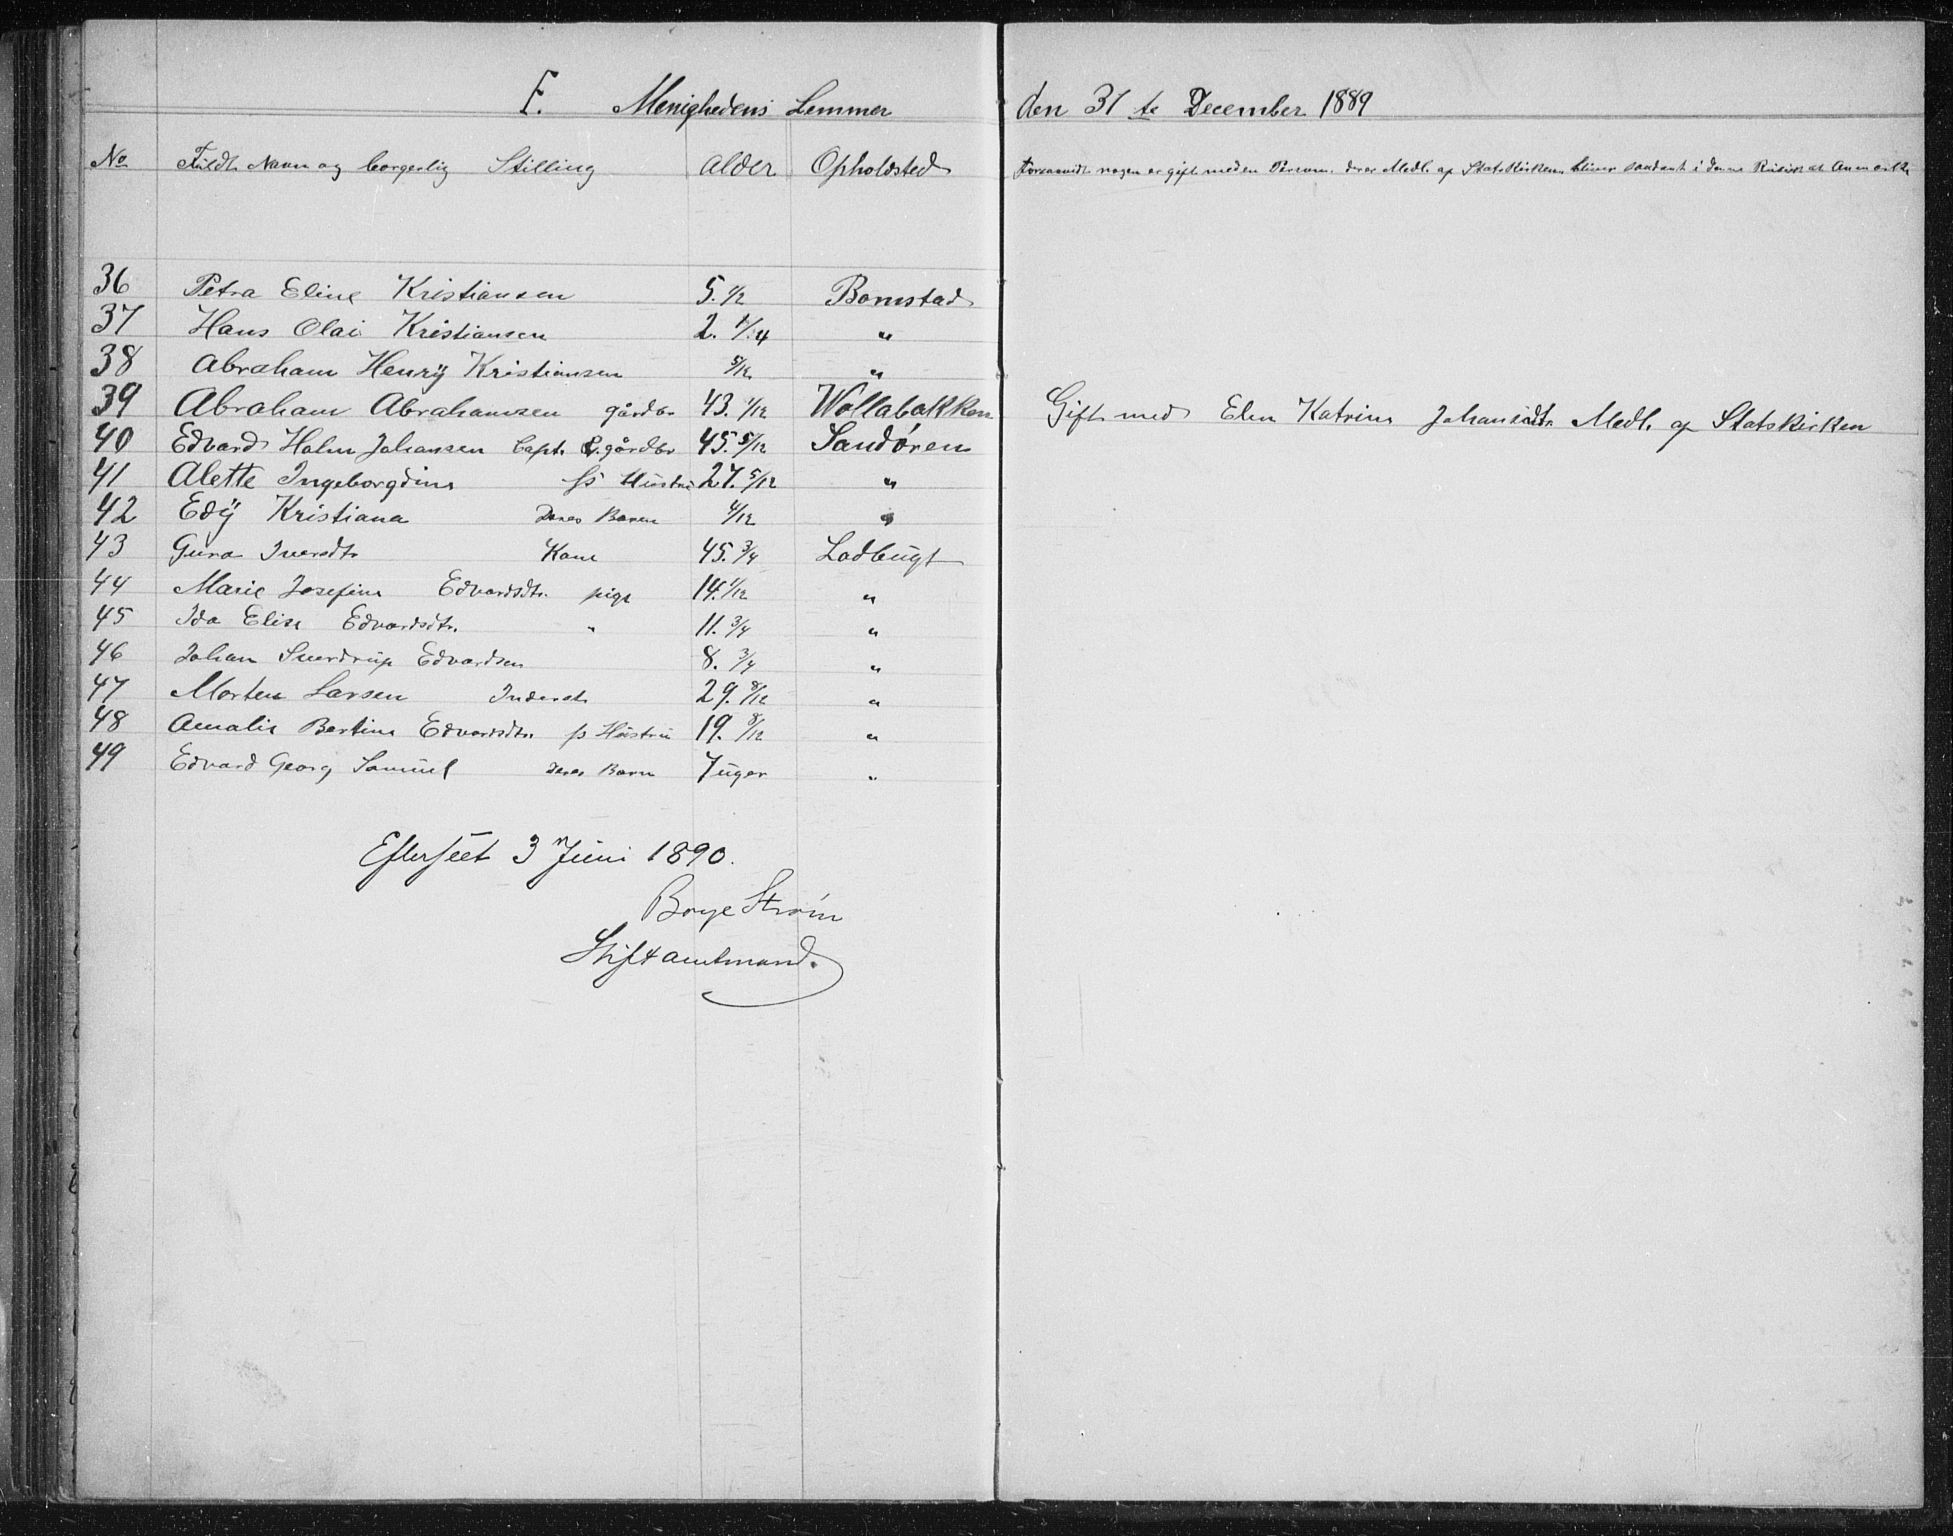 F. Menighedens Lemmer den 31te December 1889
No Fuldt Navn og borgerlig Stilling Alder Opholdsted Forsaavidt nogen er gift med en Person der er Medl. af Statskirken bliver saadant i denne Rubrik at Anmærke
36 Petra Eline Kristiansen 5. 1/2 Bomstad
37 Hans Olai Kristiansen 2. 1/4 "
38 Abraham Henrÿ Kristiansen 5/12 "
39 Abraham Abrahamsen gårdbr 43. 1/12 Wollabakken Gift med Elen Katrine Johansdtr. Medl. af Statskirken
40 Edvard Holm Johansen Capt. & gårdbr 45. 5/12 Sandøren
41 Alette Ingeborgdine hs Hustru 27. 5/12 "
42 Edÿ Kristiana Deres Baren 4/12 "
43 Gura Iversdtr Kone 45. 3/4 Ladbugt
44 Marie Josefine Edvardsdtr. pige 14. 1/12 "
45 Ida Elise Edvardsdtr. " 11. 3/4 "
46 Johan Sverdrup Edvardsen 8. 3/4 "
47 Morten Larsen Inderst 29. 8/12 "
48 Amalie Bertine Edvardsdtr. hs Hustru 19. 8/12 "
49 Edvard Georg Samuel Deres Barn 7 uger "
Efterseet 3 Juni 1890.
Boye Strøm
Stiftamtmand.